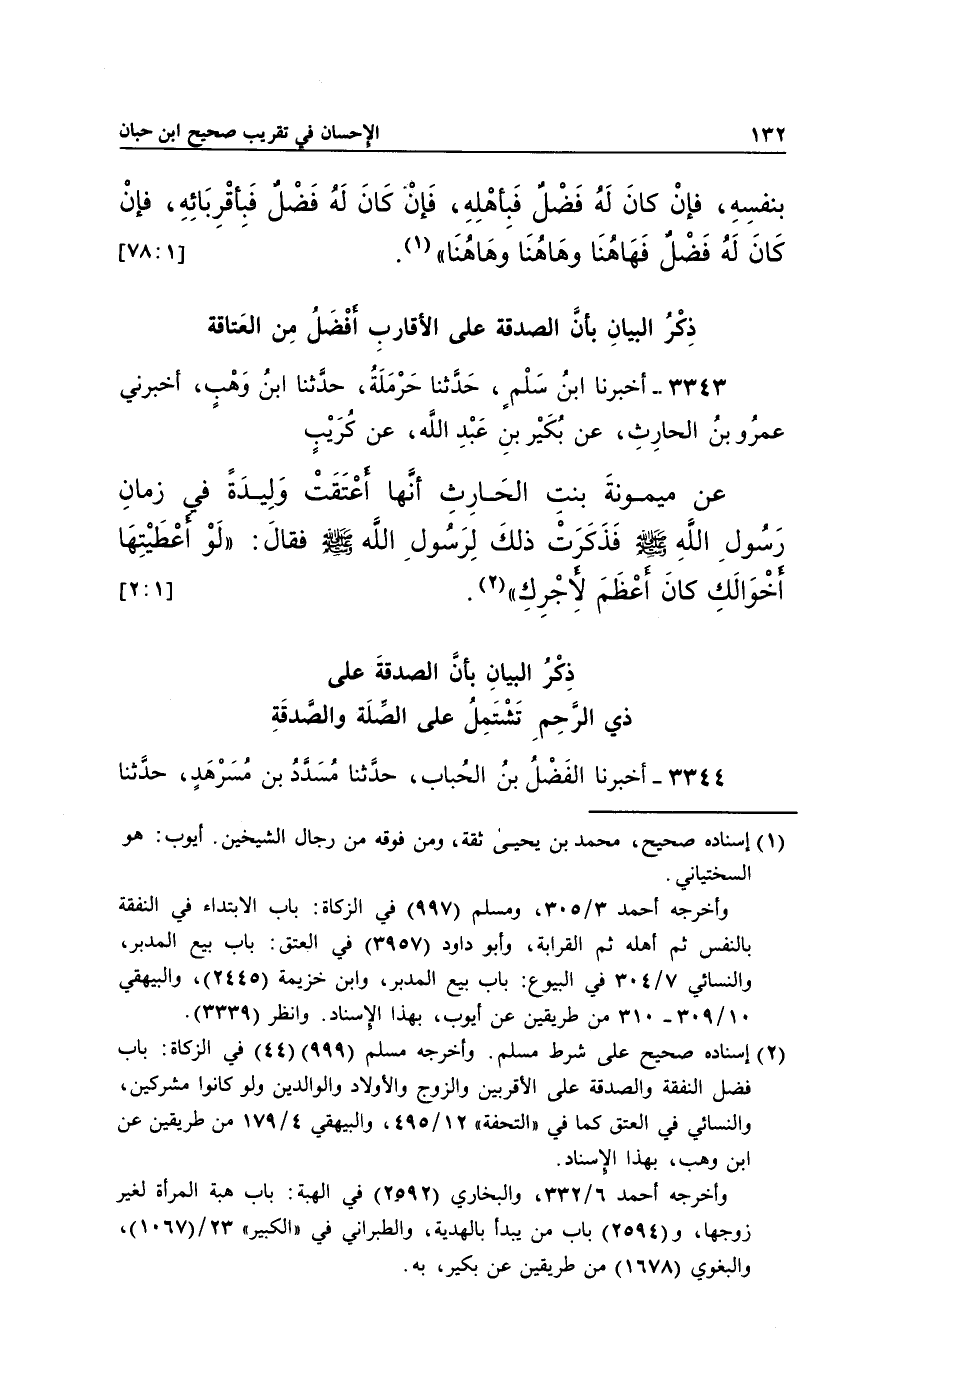 ١٣٢ الإحسان في تقريب صحيح ابن حبان
بنفسِهِ، فإنْ كانَ لَهُ فَضْلٌ فَبأهْلِهِ، فَإنْ كَانَ لَهُ فَضْلٌ فَبأقْرِبَائِهِ، فإنْ
كَانَ لَهُ فَضْلٌ فَهَاهُنَا وهَاهُنَا وهَاهُنَا»(١). [٧٨:١]
ذِكْرُ البيانِ بأنَّ الصدقة على الأقاربِ أَفْضَلُ مِن العَتاقة
٣٣٤٣ ـ أخبرنا ابنُ سَلْمٍ، حَدَّثنا حَرْمَلَةُ، حدَّثنا ابنُ وَهْبٍ، أخبرني
عمرُو بنُ الحارِثِ، عن بُكَيْرِ بنِ عَبْدِ اللَّه، عن كُرَيْبٍ
عن ميمونةَ بنتِ الحَارِثِ أنَّها أَعْتَقَتْ وَلِيدَةً في زمانِ
رَسُولِ اللَّهِ ﷺ فَذَكَرَتْ ذلكَ لِرَسُولِ اللَّه ﷺ فقالَ: «لَوْ أَعْطَيْتِهَا
أَخْوَالَكِ كانَ أَعْظَمَ لأَجْرِكِ»(٢). [٢:١]
ذِكْرُ البيانِ بأنَّ الصدقةَ على
ذي الرَّحِمِ تَشْتَمِلُ على الصِّلَة والصَّدقَةِ
٣٣٤٤ ـ أخبرنا الفَضْلُ بنُ الحُباب، حدَّثنا مُسَدَّدُ بن مُسَرْهَدٍ، حدَّثنا
(١) إسناده صحيح، محمد بن يحيىٰ ثقة، ومن فوقه من رجال الشيخين. أيوب: هو
السختياني.
وأخرجه أحمد ٣٠٥/٣، ومسلم (٩٩٧) في الزكاة: باب الابتداء في النفقة
بالنفس ثم أهله ثم القرابة، وأبو داود (٣٩٥٧) في العتق: باب بيع المدبر،
والنسائي ٣٠٤/٧ في البيوع: باب بيع المدبر، وابن خزيمة (٢٤٤٥)، والبيهقي
٣٠٩/١٠ ـ ٣١٠ من طريقين عن أيوب، بهذا الإسناد. وانظر (٣٣٣٩).
(٢) إسناده صحيح على شرط مسلم. وأخرجه مسلم (٩٩٩) (٤٤) في الزكاة: باب
فضل النفقة والصدقة على الأقربين والزوج والأولاد والوالدين ولو كانوا مشركين،
والنسائي في العتق كما في «التحفة» ٤٩٥/١٢، والبيهقي ١٧٩/٤ من طريقين عن
ابن وهب، بهذا الإسناد.
وأخرجه أحمد ٣٣٢/٦، والبخاري (٢٥٩٢) في الهبة: باب هبة المرأة لغير
زوجها، و(٢٥٩٤) باب من يبدأ بالهدية، والطبراني في «الكبير» ٢٣/(١٠٦٧)،
والبغوي (١٦٧٨) من طريقين عن بكير، به.